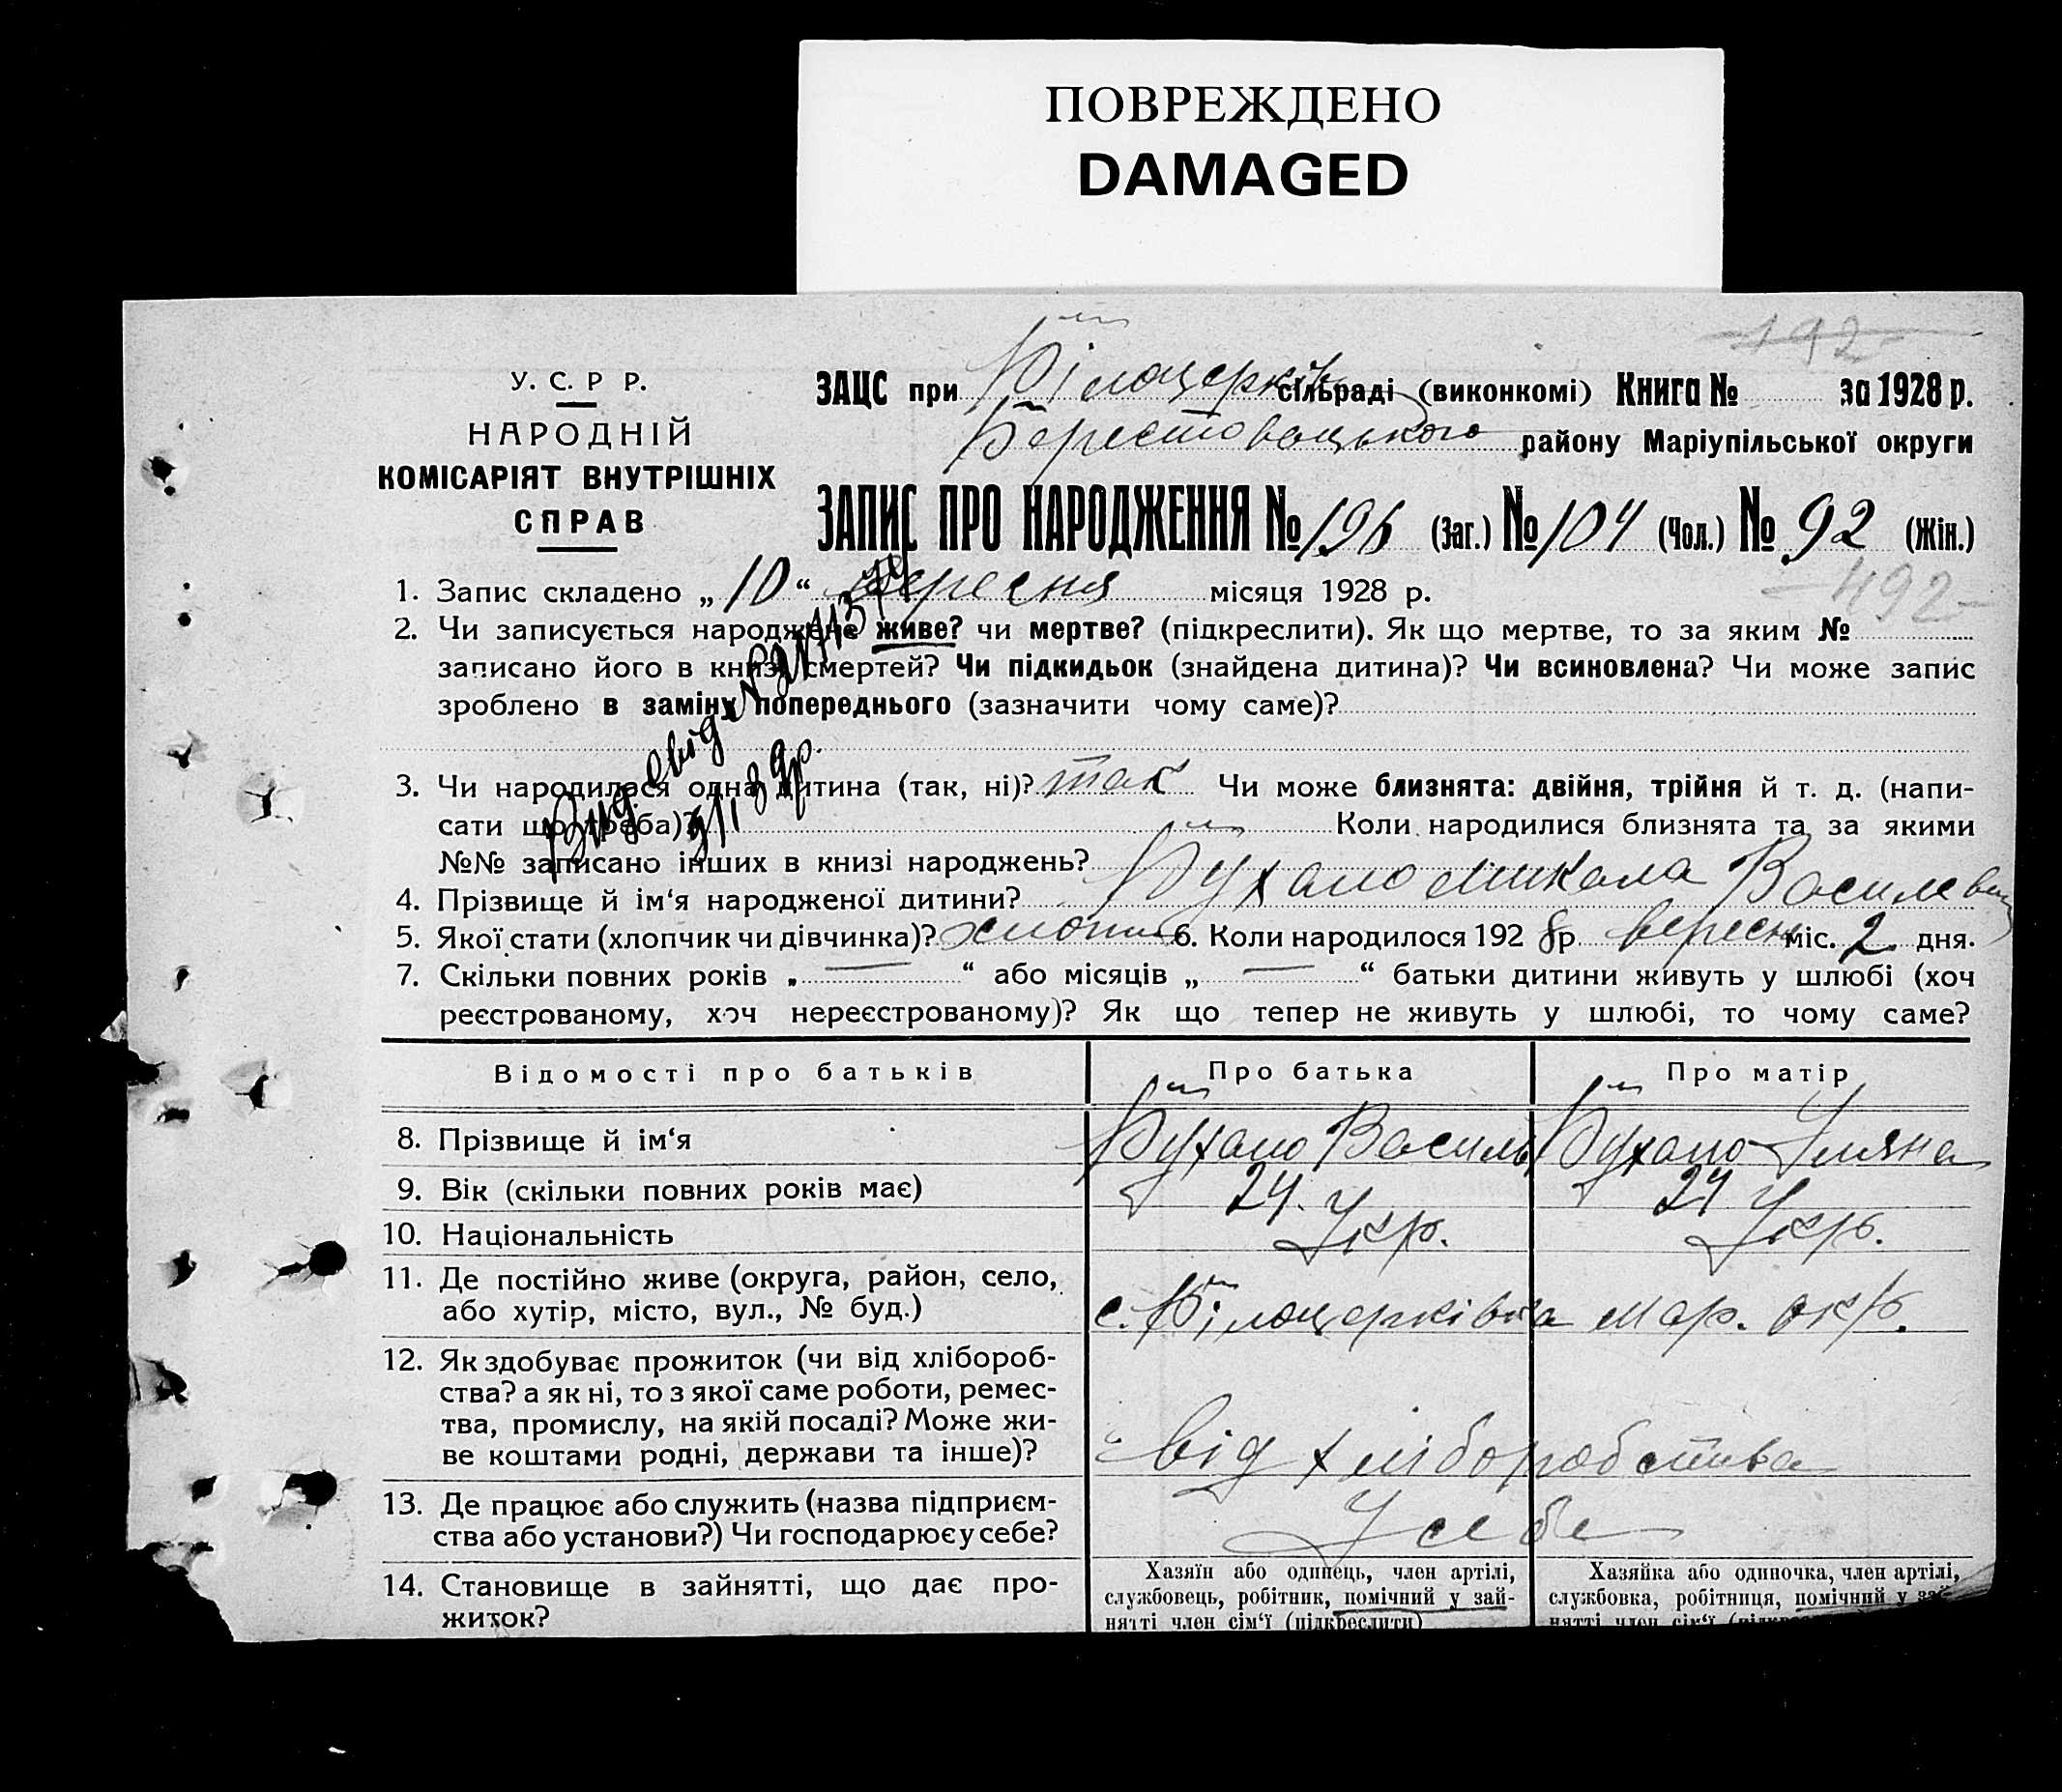 ПОВРЕЖДЕНО
DAMAGED
192
У. С. Р Р.
НАРОДНІЙ
КОМІСАРІЯТ ВНУТРІШНІХ
СПРАВ
ЗАЦС при Білоцерків сільраді (виконкомі) Книга № за 1928 р.
Берестовацького району Маріупільської округи
ЗАПИС ПРО НАРОДЖЕННЯ № 196 (Заг.) № 104 (Чол.) № 92 (Жін.)
192
1. Запис складено „ 10 “ вересня місяця 1928 р.
2. Чи записується народжене живе? чи мертве? (підкреслити). Як що мертве, то за яким №
записано його в книзі смертей? Чи підкидьок (знайдена дитина)? Чи всиновлена? Чи може запис
зроблено в заміну попереднього (зазначити чому саме)?
3. Чи народилася одна дитина (так, ні)? так Чи може близнята: двійня, трійня й т. д. (напи-
сати що треба)? Коли народилися близнята та за якими
№№ записано інших в книзі народжень?
4. Прізвище й ім‘я народженої дитини? Бухало Микола Василевич
5. Якої стати (хлопчик чи дівчинка)? хлопч 6. Коли народилося 192 8 р. вересн міс. 2 дня.
7. Скільки повних років „ — “ або місяців „ — “ батьки дитини живуть у шлюбі (хоч
реєстрованому, хоч нереєстрованому)? Як що тепер не живуть у шлюбі, то чому саме?
Вид. свід
Відомості про батьків Про батька Про матір
8. Прізвище й ім‘я Бухало Василь Бухало Уляна
9. Вік (скільки повних років має) 24. 24
10. Національність Укр. Укр.
11. Де постійно живе (округа, район, село,
або хутір, місто, вул., № буд.) с. Білоцерківка мар. окр.
12. Як здобуває прожиток (чи від хлібороб-
ства? а як ні, то з якої саме роботи, ремес-
тва, промислу, на якій посаді? Може жи-
ве коштами родні, держави та інше)? від хліборобства
13. Де працює або служить (назва підприєм-
ства або установи?) Чи господарює у себе? У себе
14. Становище в зайнятті, що дає про-
житок?
Хазяїн або одинець, член артілі,
службовець, робітник, помічний у зай-
нятті член сім‘ї (підкреслити)
Хазяйка або одиночка, член артілі,
службовка, робітниця, помічний у зай-
нятті член сім‘ї